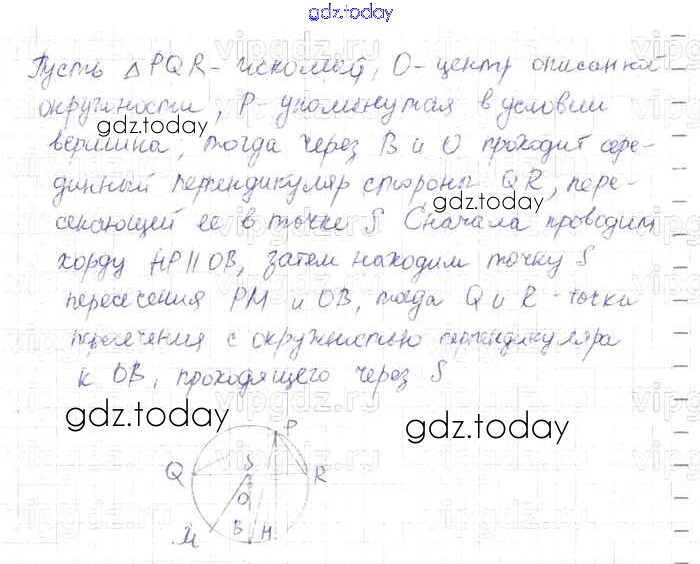 gdz.today
Пусть △PQR - искомый, O - центр описанной
окружности, P - упомянутая в условии
gdz.today
вершина, тогда через B и O проходит сере-
динный перпендикуляр стороны QR, пере-
gdz.today
секающей ее в точке S Сначала проводим
хорду HP || OB, затем находим точку S
пересесения PM и OB, тогда Q и R - точки
пересечения с окружностью перпендикуляра
к OB, проходящего через S
gdz.today
gdz.today
P
Q S R
O
M B H